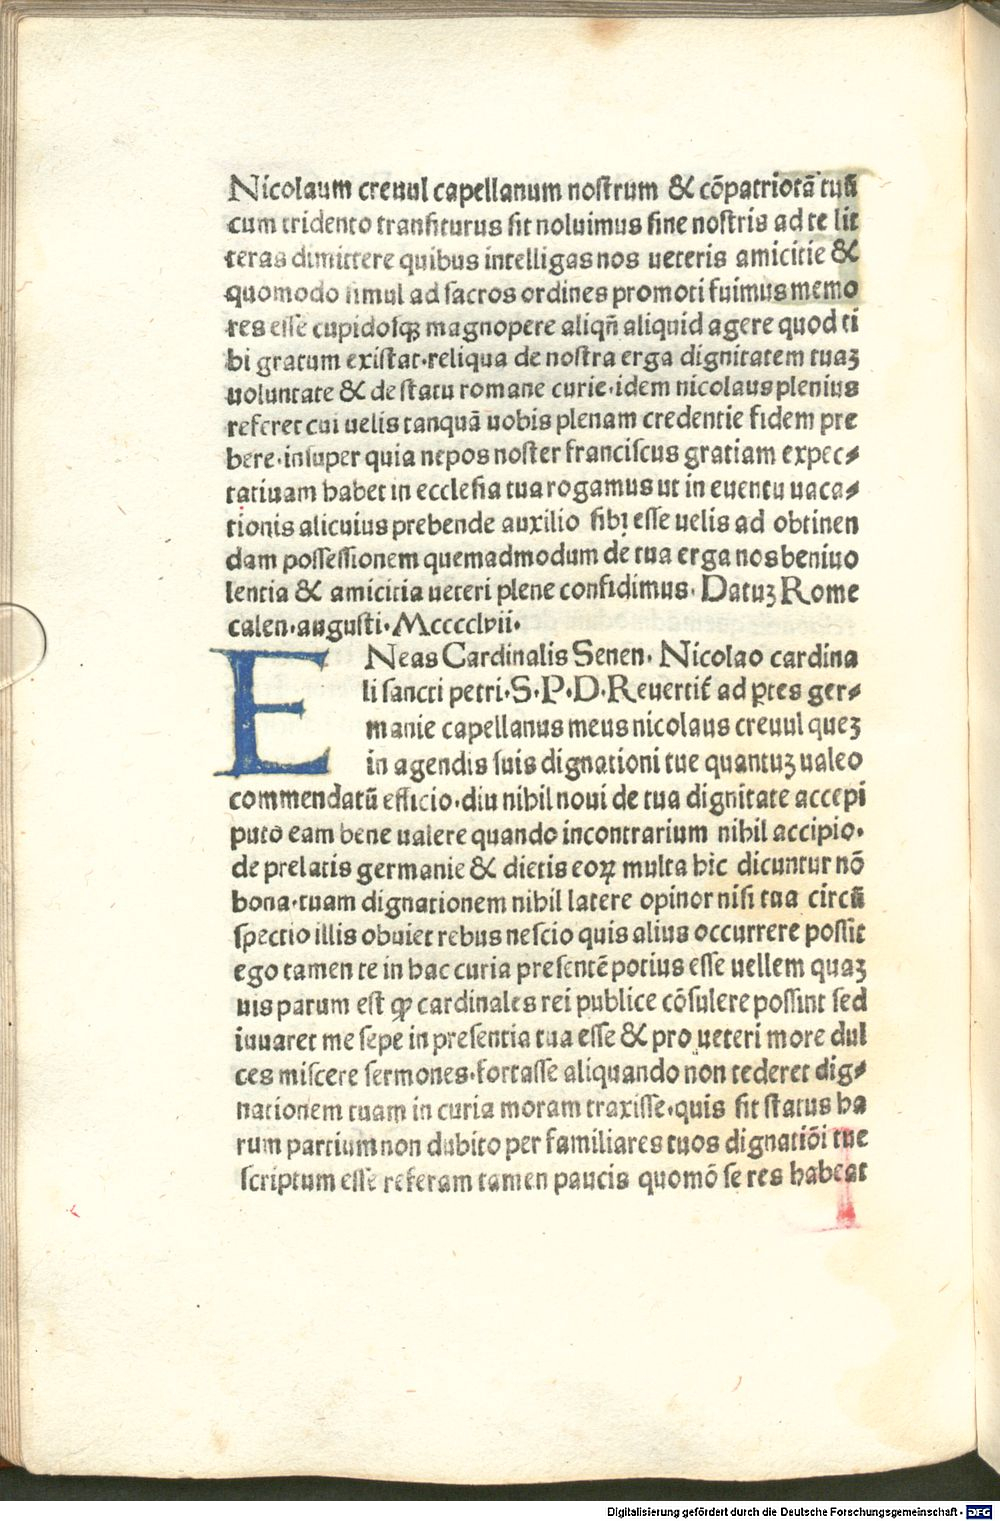 Nicolaum creuul capellanum nostrum & cõpatriotã tuũ
cum tridento transiturus sit noluimus sine nostris ad te lit
teras dimittere quibus intelligas nos ueteris amicitie &
quomodo simul ad sacros ordines promoti fuimus memo
res esse cupidosqꝫ magnopere aliqñ aliquid agere quod ti
bi gratum existat·reliqua de nostra erga dignitatem tuaꝫ
uoluntate & de statu romane curie·idem nicolaus plenius
referet cui uelis tanquã uobis plenam credentie fidem pre
bere·insuper quia nepos noster franciscus gratiam expec⸗
tatiuam habet in ecclesia tua rogamus ut in euentu uaca⸗
tionis alicuius prebende auxilio sibi esse uelis ad obtinen
dam possessionem quemadmodum de tua erga nos beniuo
lentia & amicitia ueteri plene confidimus· Datuꝫ Rome
calen·augusti·Mcccclvii·
ENeas Cardinalis Senen· Nicolao cardina
li sancti petri·S·P·D·Reuertit̃ ad ꝑtes ger⸗
manie capellanus meus nicolaus creuul queꝫ
in agendis suis dignationi tue quantuꝫ ualeo
commendatũ efficio·diu nihil noui de tua dignitate accepi
puto eam bene ualere quando incontrarium nihil accipio·
de prelatis germanie & dietis eoꝝ multa hic dicuntur nõ
bona·tuam dignationem nihil latere opinor nisi tua circũ
spectio illis obuiet rebus nescio quis alius occurrere possit
ego tamen te in hac curia presentẽ potius esse uellem quaꝫ
uis parum est ꝙ cardinales rei publice cõsulere possint sed
iuuaret me sepe in presentia tua esse & pro ueteri more dul
ces miscere sermones·fortasse aliquando non tederet dig⸗
nationem tuam in curia moram traxisse·quis sit status ha
rum partium non dubito per familiares tuos dignatiõi tue
scriptum esse referam tamen paucis quomõ se res habeat
Digitalisierung gefördert durch die Deutsche Forschungsgemeinschaft - DFG